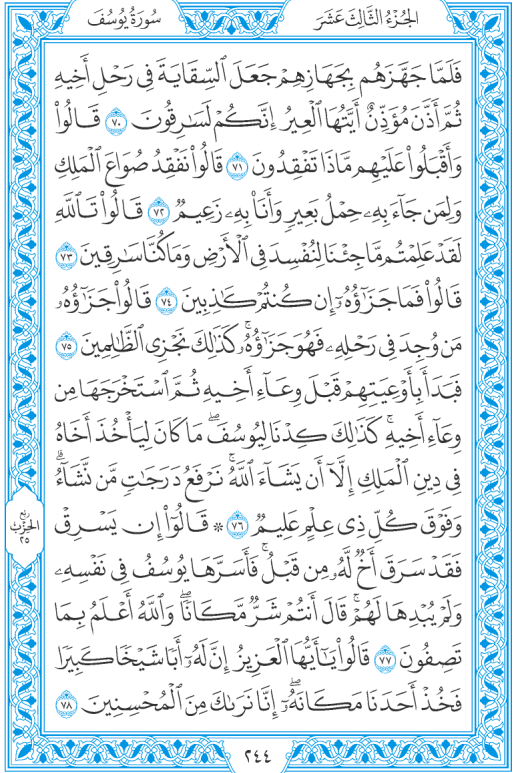 الجُزْءُ الثَّالِثَ عَشَرَ
سُورَةُ يُوسُفَ
فَلَمَّا جَهَّزَهُم بِجَهَازِهِمْ جَعَلَ ٱلسِّقَايَةَ فِى رَحْلِ أَخِيهِ
ثُمَّ أَذَّنَ مُؤَذِّنٌ أَيَّتُهَا ٱلْعِيرُ إِنَّكُمْ لَسَـٰرِقُونَ ٧٠ قَالُوا۟
وَأَقْبَلُوا۟ عَلَيْهِم مَّاذَا تَفْقِدُونَ ٧١ قَالُوا۟ نَفْقِدُ صُوَاعَ ٱلْمَلِكِ
وَلِمَن جَآءَ بِهِۦ حِمْلُ بَعِيرٍ وَأَنَا۠ بِهِۦ زَعِيمٌ ٧٢ قَالُوا۟ تَٱللَّهِ
لَقَدْ عَلِمْتُم مَّا جِئْنَا لِنُفْسِدَ فِى ٱلْأَرْضِ وَمَا كُنَّا سَـٰرِقِينَ ٧٣
قَالُوا۟ فَمَا جَزَٰٓؤُهُۥٓ إِن كُنتُمْ كَـٰذِبِينَ ٧٤ قَالُوا۟ جَزَٰٓؤُهُۥ
مَن وُجِدَ فِى رَحْلِهِۦ فَهُوَ جَزَٰٓؤُهُۥ ۚ كَذَٰلِكَ نَجْزِى ٱلظَّـٰلِمِينَ ٧٥
فَبَدَأَ بِأَوْعِيَتِهِمْ قَبْلَ وِعَآءِ أَخِيهِ ثُمَّ ٱسْتَخْرَجَهَا مِن
وِعَآءِ أَخِيهِ ۚ كَذَٰلِكَ كِدْنَا لِيُوسُفَ ۖ مَا كَانَ لِيَأْخُذَ أَخَاهُ
فِى دِينِ ٱلْمَلِكِ إِلَّآ أَن يَشَآءَ ٱللَّهُ ۚ نَرْفَعُ دَرَجَـٰتٍ مَّن نَّشَآءُ ۗ
وَفَوْقَ كُلِّ ذِى عِلْمٍ عَلِيمٌ ٧٦ ۞ قَالُوٓا۟ إِن يَسْرِقْ
فَقَدْ سَرَقَ أَخٌ لَّهُۥ مِن قَبْلُ ۚ فَأَسَرَّهَا يُوسُفُ فِى نَفْسِهِۦ
وَلَمْ يُبْدِهَا لَهُمْ ۚ قَالَ أَنتُمْ شَرٌّ مَّكَانًا ۖ وَٱللَّهُ أَعْلَمُ بِمَا
تَصِفُونَ ٧٧ قَالُوا۟ يَـٰٓأَيُّهَا ٱلْعَزِيزُ إِنَّ لَهُۥٓ أَبًا شَيْخًا كَبِيرًا
فَخُذْ أَحَدَنَا مَكَانَهُۥٓ ۖ إِنَّا نَرَىٰكَ مِنَ ٱلْمُحْسِنِينَ ٧٨
ربع
الحزب
٢٥
٢٤٤